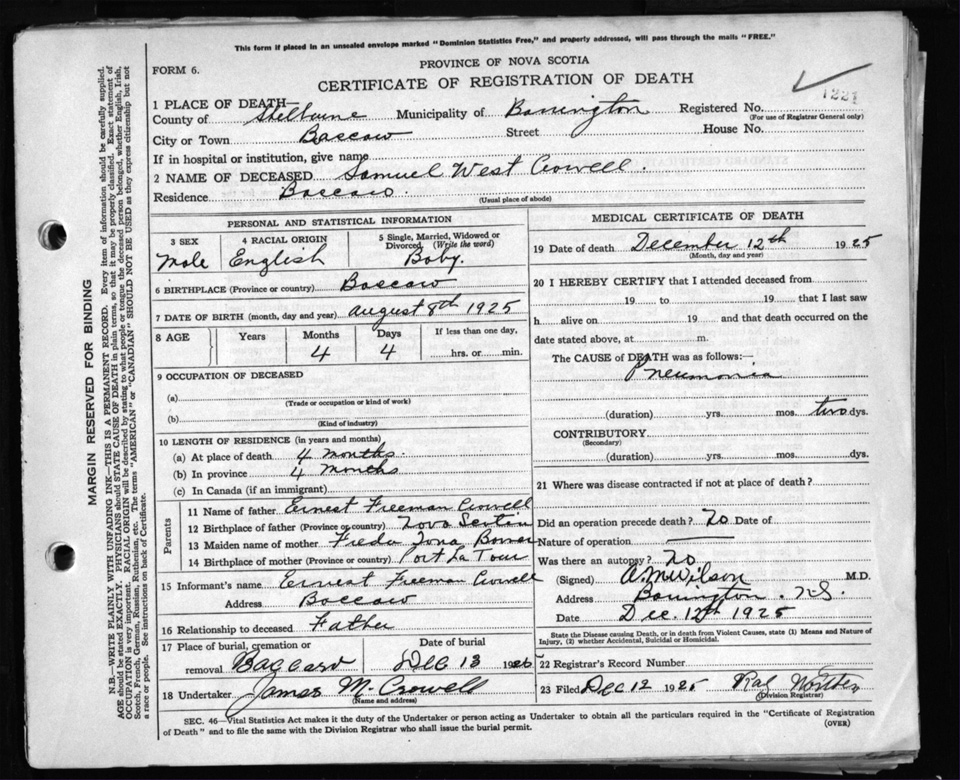 This form if placed in an unsealed envelope marked "Dominion Statistics Free," and properly addressed, will pass through the mails "FREE."
PROVINCE OF NOVA SCOTIA
FORM 6.
CERTIFICATE OF REGISTRATION OF DEATH
1221
1 PLACE OF DEATH—
County of Shelburne Municipality of Barrington Registered No.
(For use of Registrar General only)
City or Town Baccaro Street House No.
If in hospital or institution, give name
2 NAME OF DECEASED Samuel West Crowell.
Residence Baccaro.
(Usual place of abode)
PERSONAL AND STATISTICAL INFORMATION
3 SEX 4 RACIAL ORIGIN 5 Single, Married, Widowed or Divorced (Write the word)
Male English Baby.
6 BIRTHPLACE (Province or country) Baccaro
7 DATE OF BIRTH (month, day and year) August 8th 1925
8 AGE Years Months Days If less than one day,
4 4 hrs. or min.
9 OCCUPATION OF DECEASED
(a)
(Trade or occupation or kind of work)
(b)
(Kind of industry)
10 LENGTH OF RESIDENCE (in years and months)
(a) At place of death 4 months.
(b) In province 4 months
(c) In Canada (if an immigrant)
Parents
11 Name of father Ernest Freeman Crowell
12 Birthplace of father (Province or country) Nova Scotia
13 Maiden name of mother Freda
14 Birthplace of mother (Province or country) Port La Tour
15 Informant's name Ernest Freeman Crowell
Address Baccaro
16 Relationship to deceased Father
17 Place of burial, cremation or removal Baccaro Date of burial Dec 13 192
18 Undertaker James M. Crowell
(Name and address)
MEDICAL CERTIFICATE OF DEATH
19 Date of death December 12th 1925
(Month, day and year)
20 I HEREBY CERTIFY that I attended deceased from
19 to 19 that I last saw
h alive on 19 and that death occurred on the
date stated above, at m.
The CAUSE of DEATH was as follows:—
Pneumonia
(duration) yrs. mos. two dys.
CONTRIBUTORY
(Secondary)
(duration) yrs. mos. dys.
21 Where was disease contracted if not at place of death?
Did an operation precede death? No Date of
Nature of operation
Was there an autopsy? No
(Signed) A. M. Wilson M.D.
Address Barrington. N.S.
Date Dec. 12th 1925
State the Disease causing Death, or in death from Violent Causes, state (1) Means and Nature of
Injury, (2) whether Accidental, Suicidal or Homicidal.
22 Registrar's Record Number
23 Filed Dec 12 1925
(Division Registrar)
SEC. 46—Vital Statistics Act makes it the duty of the Undertaker or person acting as Undertaker to obtain all the particulars required in the "Certificate of Registration
of Death" and to file the same with the Division Registrar who shall issue the burial permit.
(OVER)
MARGIN RESERVED FOR BINDING
N.B.—WRITE PLAINLY WITH UNFADING INK—THIS IS A PERMANENT RECORD. Every item of information should be carefully supplied.
AGE should be stated EXACTLY. PHYSICIANS should STATE CAUSE OF DEATH in plain terms, so that it may be properly classified. Exact statement of
OCCUPATION is very important. RACIAL ORIGIN will be described by stating to what people or tongue the deceased person belonged, whether English, Irish,
Scotch, French, German, Russian, Ruthenian, etc. The terms "AMERICAN" or "CANADIAN" SHOULD NOT BE USED as they express citizenship but not
a race or people. See instructions on back of Certificate.